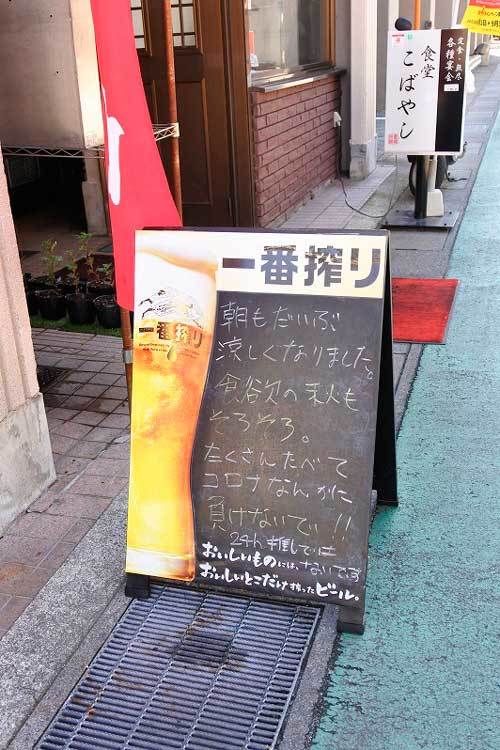 定食・無尽
各種宴会
食堂
こばやし
一番搾り
一番搾り
朝もだいぶ
涼しくなりました。
食欲の秋も
そろそろ。
たくさんたべて
コロナなんかに
負けないでぃ!!
24h推しでは
ないです.
おいしいものには、
おいしいとこだけ搾ったビール。